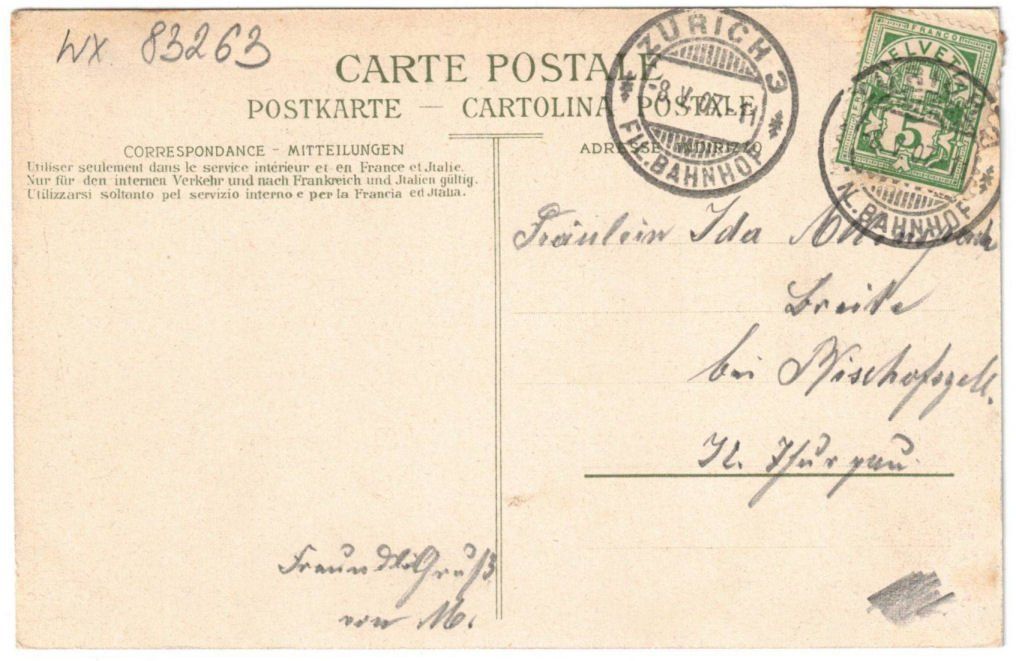 wx 83263
CARTE POSTALE
POSTKARTE — CARTOLINA POSTALE
CORRESPONDANCE - MITTEILUNGEN
Utiliser seulement dans le service intérieur et en France et Italie.
Nur für den internen Verkehr und nach Frankreich und Italien gültig.
Utilizzarsi soltanto pel servizio interno e per la Francia ed Italia.
ADRESSE INDIRIZZO
ZÜRICH 3
8.V.07. 11
FIL. BAHNHOF
FRANCO
HELVETIA
5
BAHNHOF
Fräulein Ida
Breite
bei Bischofszell.
Kt. Thurgau.
Freundl. Gruß
von M.